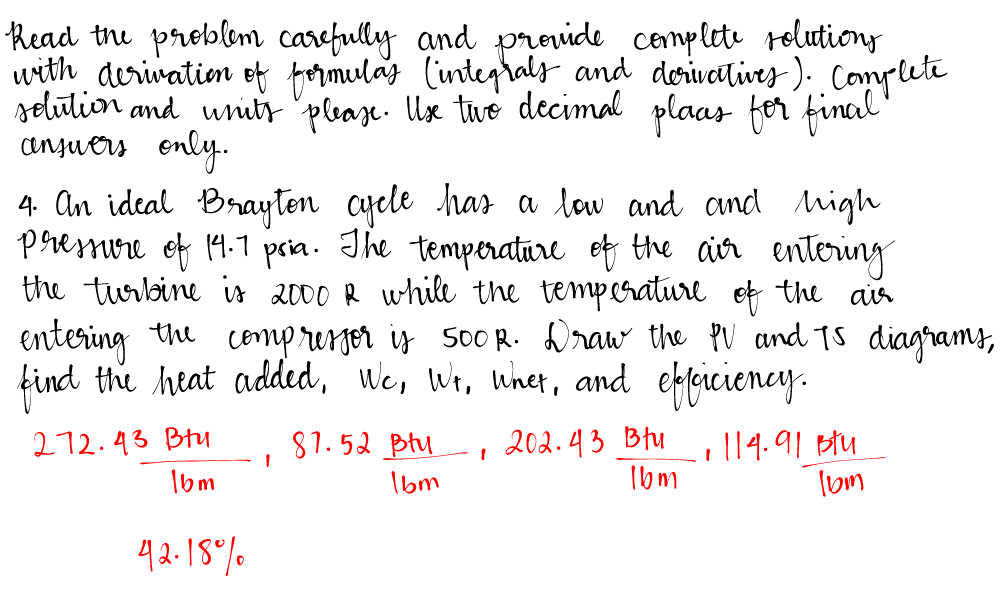 Read the problem carefully and provide complete solutions
with derivation of formulas (integrals and derivatives). Complete
solution and units please. Use two decimal places for final
answers only.
4. An ideal Brayton cycle has a low and and high
pressure of 14.7 psia. The temperature of the air entering
the turbine is 2000 R while the temperature of the air
entering the compressor is 500 R. Draw the PV and TS diagrams,
find the heat added, Wc, Wt, Wnet, and efficiency.
272.43 Btu/lbm, 87.52 Btu/lbm, 202.43 Btu/lbm, 114.91 Btu/lbm
42.18%